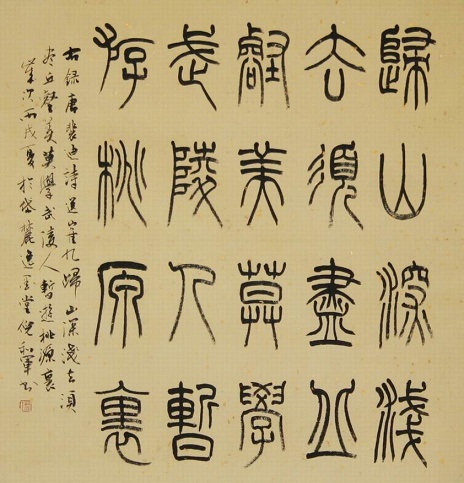 歸山深淺
去須盡丘
壑美莫學
武陵人暫
游桃原裏
右録唐裴迪詩送崔九歸山深淺去須
盡丘壑美莫學武陵人暫遊桃源裏
歲次丙戌夏於岱麓逸墨堂倪和軍書